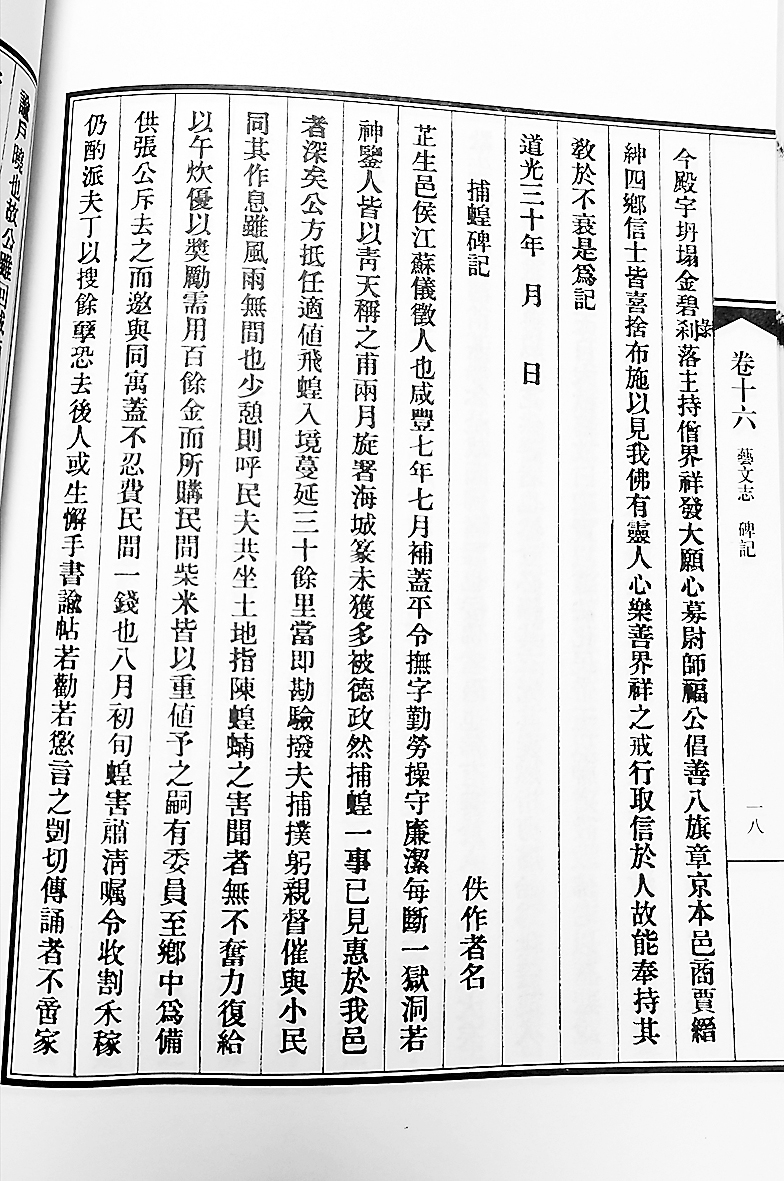 卷十六 藝文志 碑記 一八
今殿宇坍塌金碧剝落主持僧界祥發大願心募尉師福公倡善八旗章京本邑商賈縉
紳四鄉信士皆喜捨布施以見我佛有靈人心樂善界祥之戒行取信於人故能奉持其
敎於不衰是爲記
道光三十年 月 日
捕蝗碑記 佚作者名
芷生邑侯江蘇儀徵人也咸豐七年七月補蓋平令撫字勤勞操守廉潔每斷一獄洞若
神鑒人皆以靑天稱之甫兩月旋署海城篆未獲多被德政然捕蝗一事已見惠於我邑
者深矣公方抵任適値飛蝗入境蔓延三十餘里當即勘驗撥夫捕撲躬親督催與小民
同其作息雖風雨無間也少憩則呼民夫共坐土地指陳蝗蝻之害聞者無不奮力復給
以午炊優以獎勵需用百餘金而所購民間柴米皆以重値予之嗣有委員至鄉中爲備
供張公斥去之而邀與同寓蓋不忍費民間一錢也八月初旬蝗害肅淸囑令收割禾稼
仍酌派夫丁以搜餘孽恐去後人或生懈手書諭帖若勸若懲言之剴切傳誦者不啻家
諭戶曉也故公雖